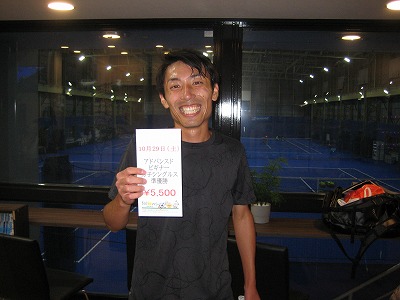 10月29日(土)
アドバンスド
ビギナー
子シングルス
準優勝
¥5,500